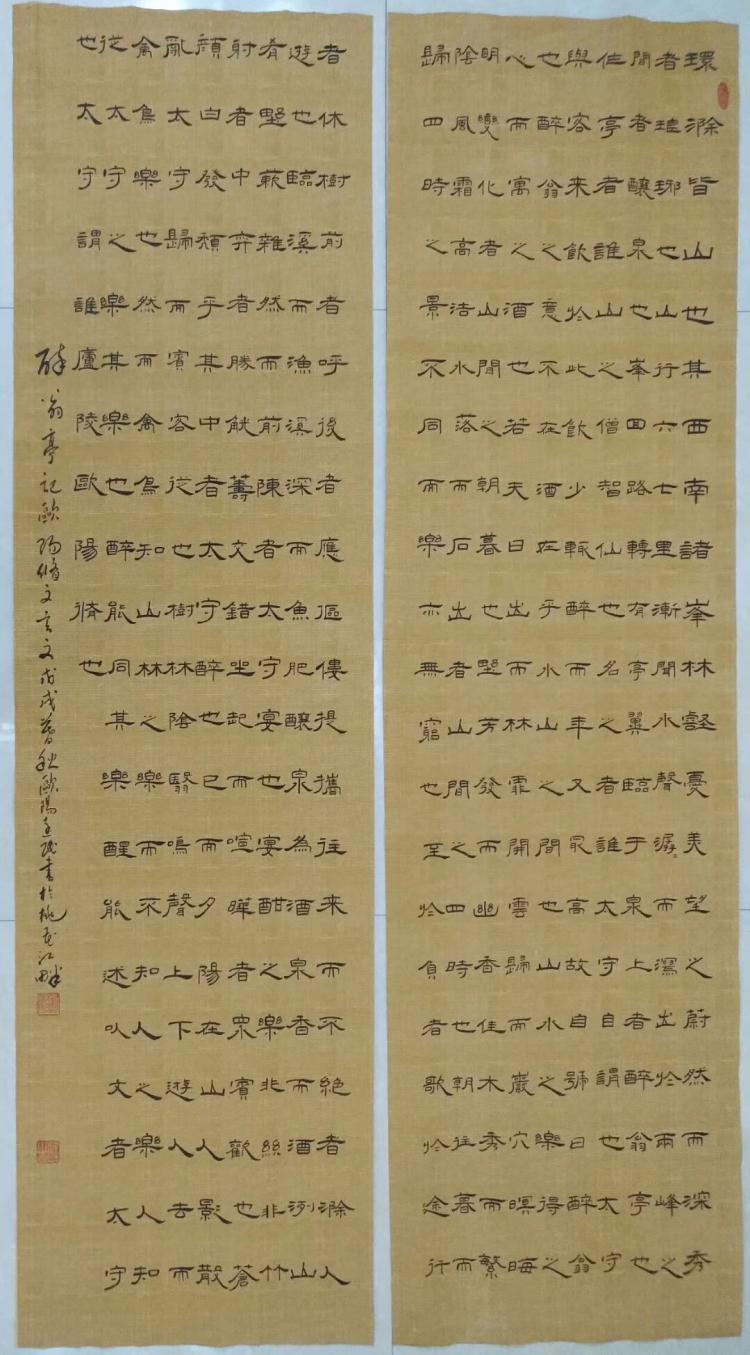 環滁皆山也其西南諸峯林壑憂美望之蔚然而深秀
者琅琊也山行六七里漸聞水聲潺〻而瀉出於兩峰之
間者釀泉也峯回路轉有亭翼臨于泉上者醉翁亭也
作亭者誰山之僧智仙也名之者誰太守自謂也太守
與客来飲於此飲少輒醉而年又最高故自號曰醉翁
也醉翁之意不在酒在乎水山之間也山水之樂得之
心而寓之酒也若夫日出而林霏開雲歸而巖穴暝晦
明變化者山間之朝暮也野芳發而幽香佳木秀而繁
陰風霜高洁水落而石出者山間之四時也朝往暮而
歸四時之景不同而樂亦無窮也至於負者歌於途行
者休樹前者呼後者應傴僂提攜往来而不絕者滁人
遊也臨溪而漁溪深而魚肥釀泉為酒泉香而酒洌山
肴野蔌雜然而前陳者太守宴也宴酣之樂非絲非竹
射者中弈者勝觥籌交錯坐起而喧嘩者眾賓歡也蒼
顏白發頹乎其中者太守醉也已而夕陽在山人影散
亂太守歸而賓客從也樹林陰翳鳴聲上下遊人去而
禽鳥樂也然而禽鳥知山林之樂而不知人之樂人知
從太守之樂其樂也醉能同其樂醒能述以文者太守
也太守謂誰廬陵歐陽脩也
醉翁亭記歐陽脩文言文戊戌暮秋歐陽書於桃花江畔